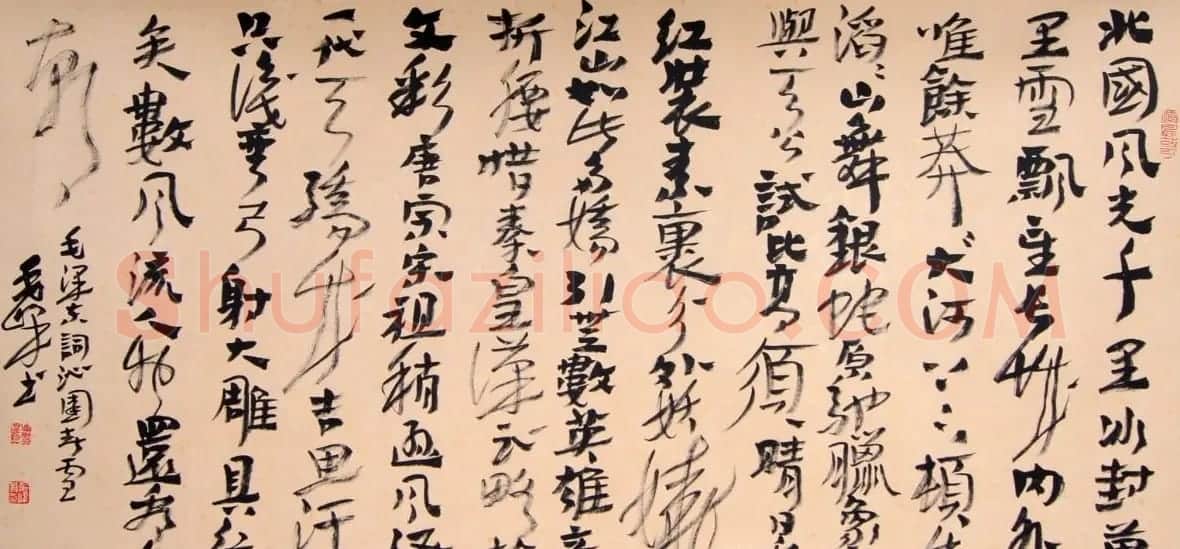 北國風光千里冰封萬
里雪飄望長城內外
唯餘莽大河上下頓失
滔〻山舞銀蛇原馳臘象
與天公試比高須晴日
紅裝素裹分外妖嬈
江山如此多嬌引無數英雄競
折腰惜秦皇漢武略輸
文彩唐宗宋祖稍遜風騷
一代天驕成吉思汗
只識彎弓射大雕具往
矣數風流人物還看今
朝
毛澤東詞沁園春雪
書
Shufaziliao.COM